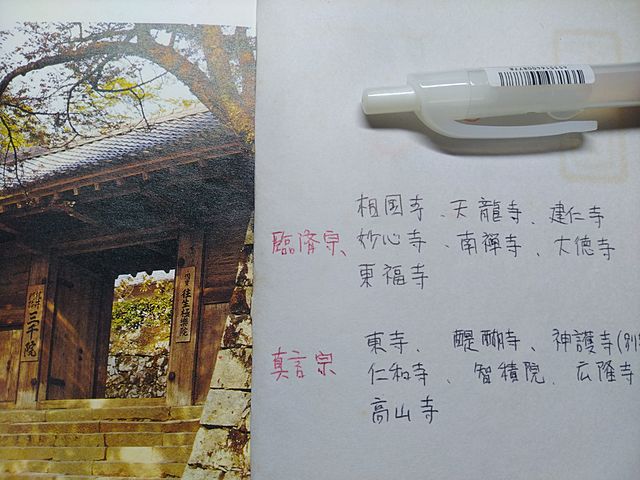 相国寺、天龍寺、建仁寺
臨済宗、妙心寺、南禅寺、大徳寺
東福寺
東寺、醍醐寺、神護寺(別
真言宗 仁和寺、智積院、広隆寺
高山寺
三千院
往生極楽院